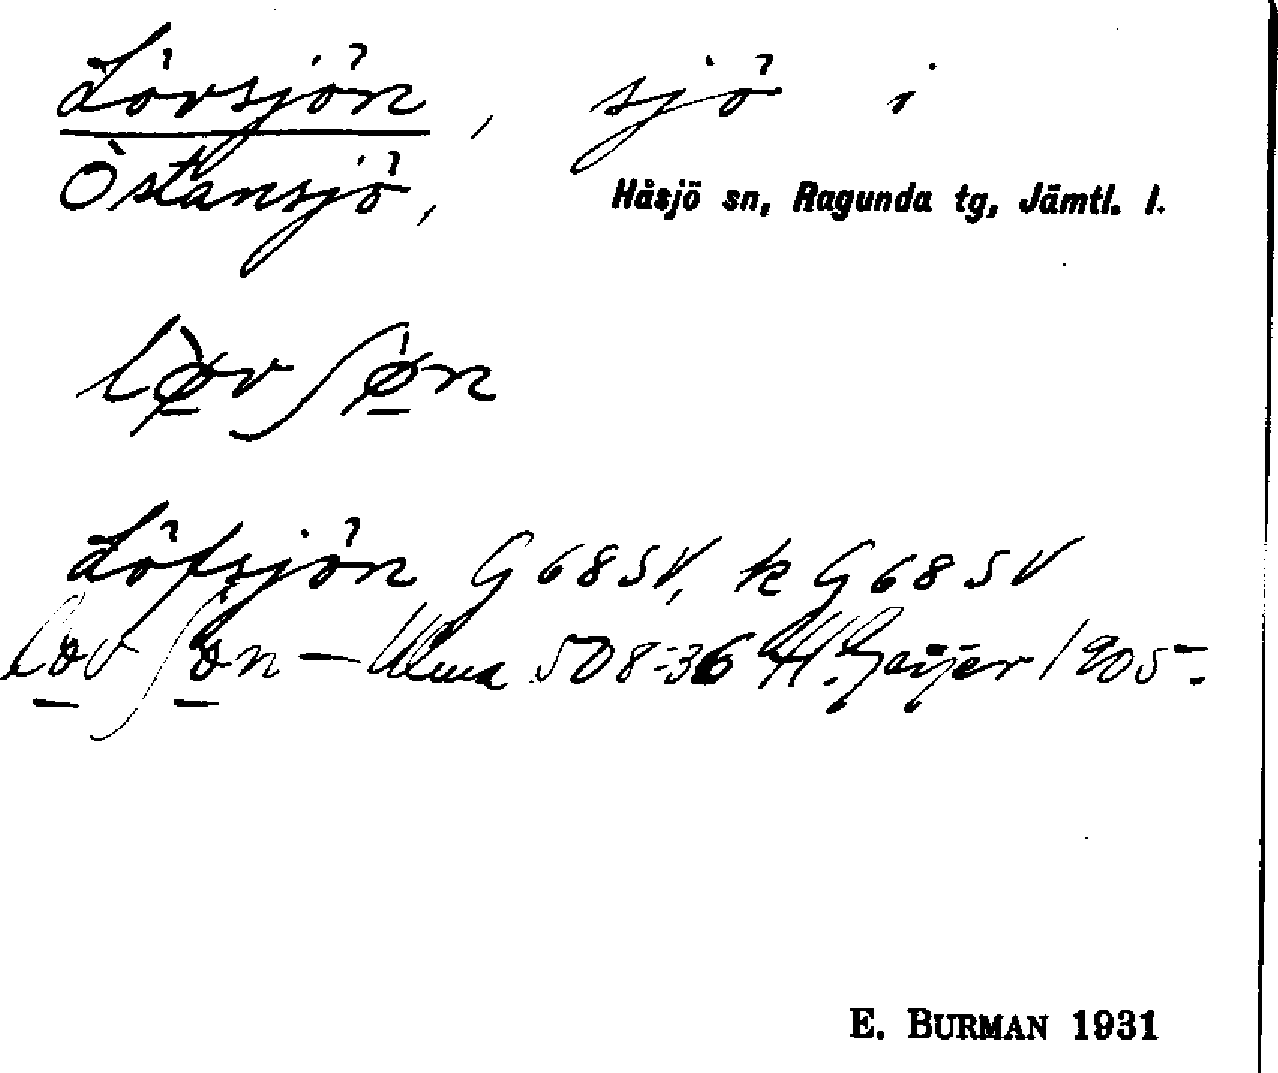 Lövsjön, sjö i
Östansjö, Håsjö sn, Ragunda tg, Jämtl. l.
lø̱vʃø̱n
Löfsjön G 68 SV, k G 68 SV
lo̱vʃo̱n — Ulma 508:36 H. Geijer 1905-.
E. BURMAN 1931